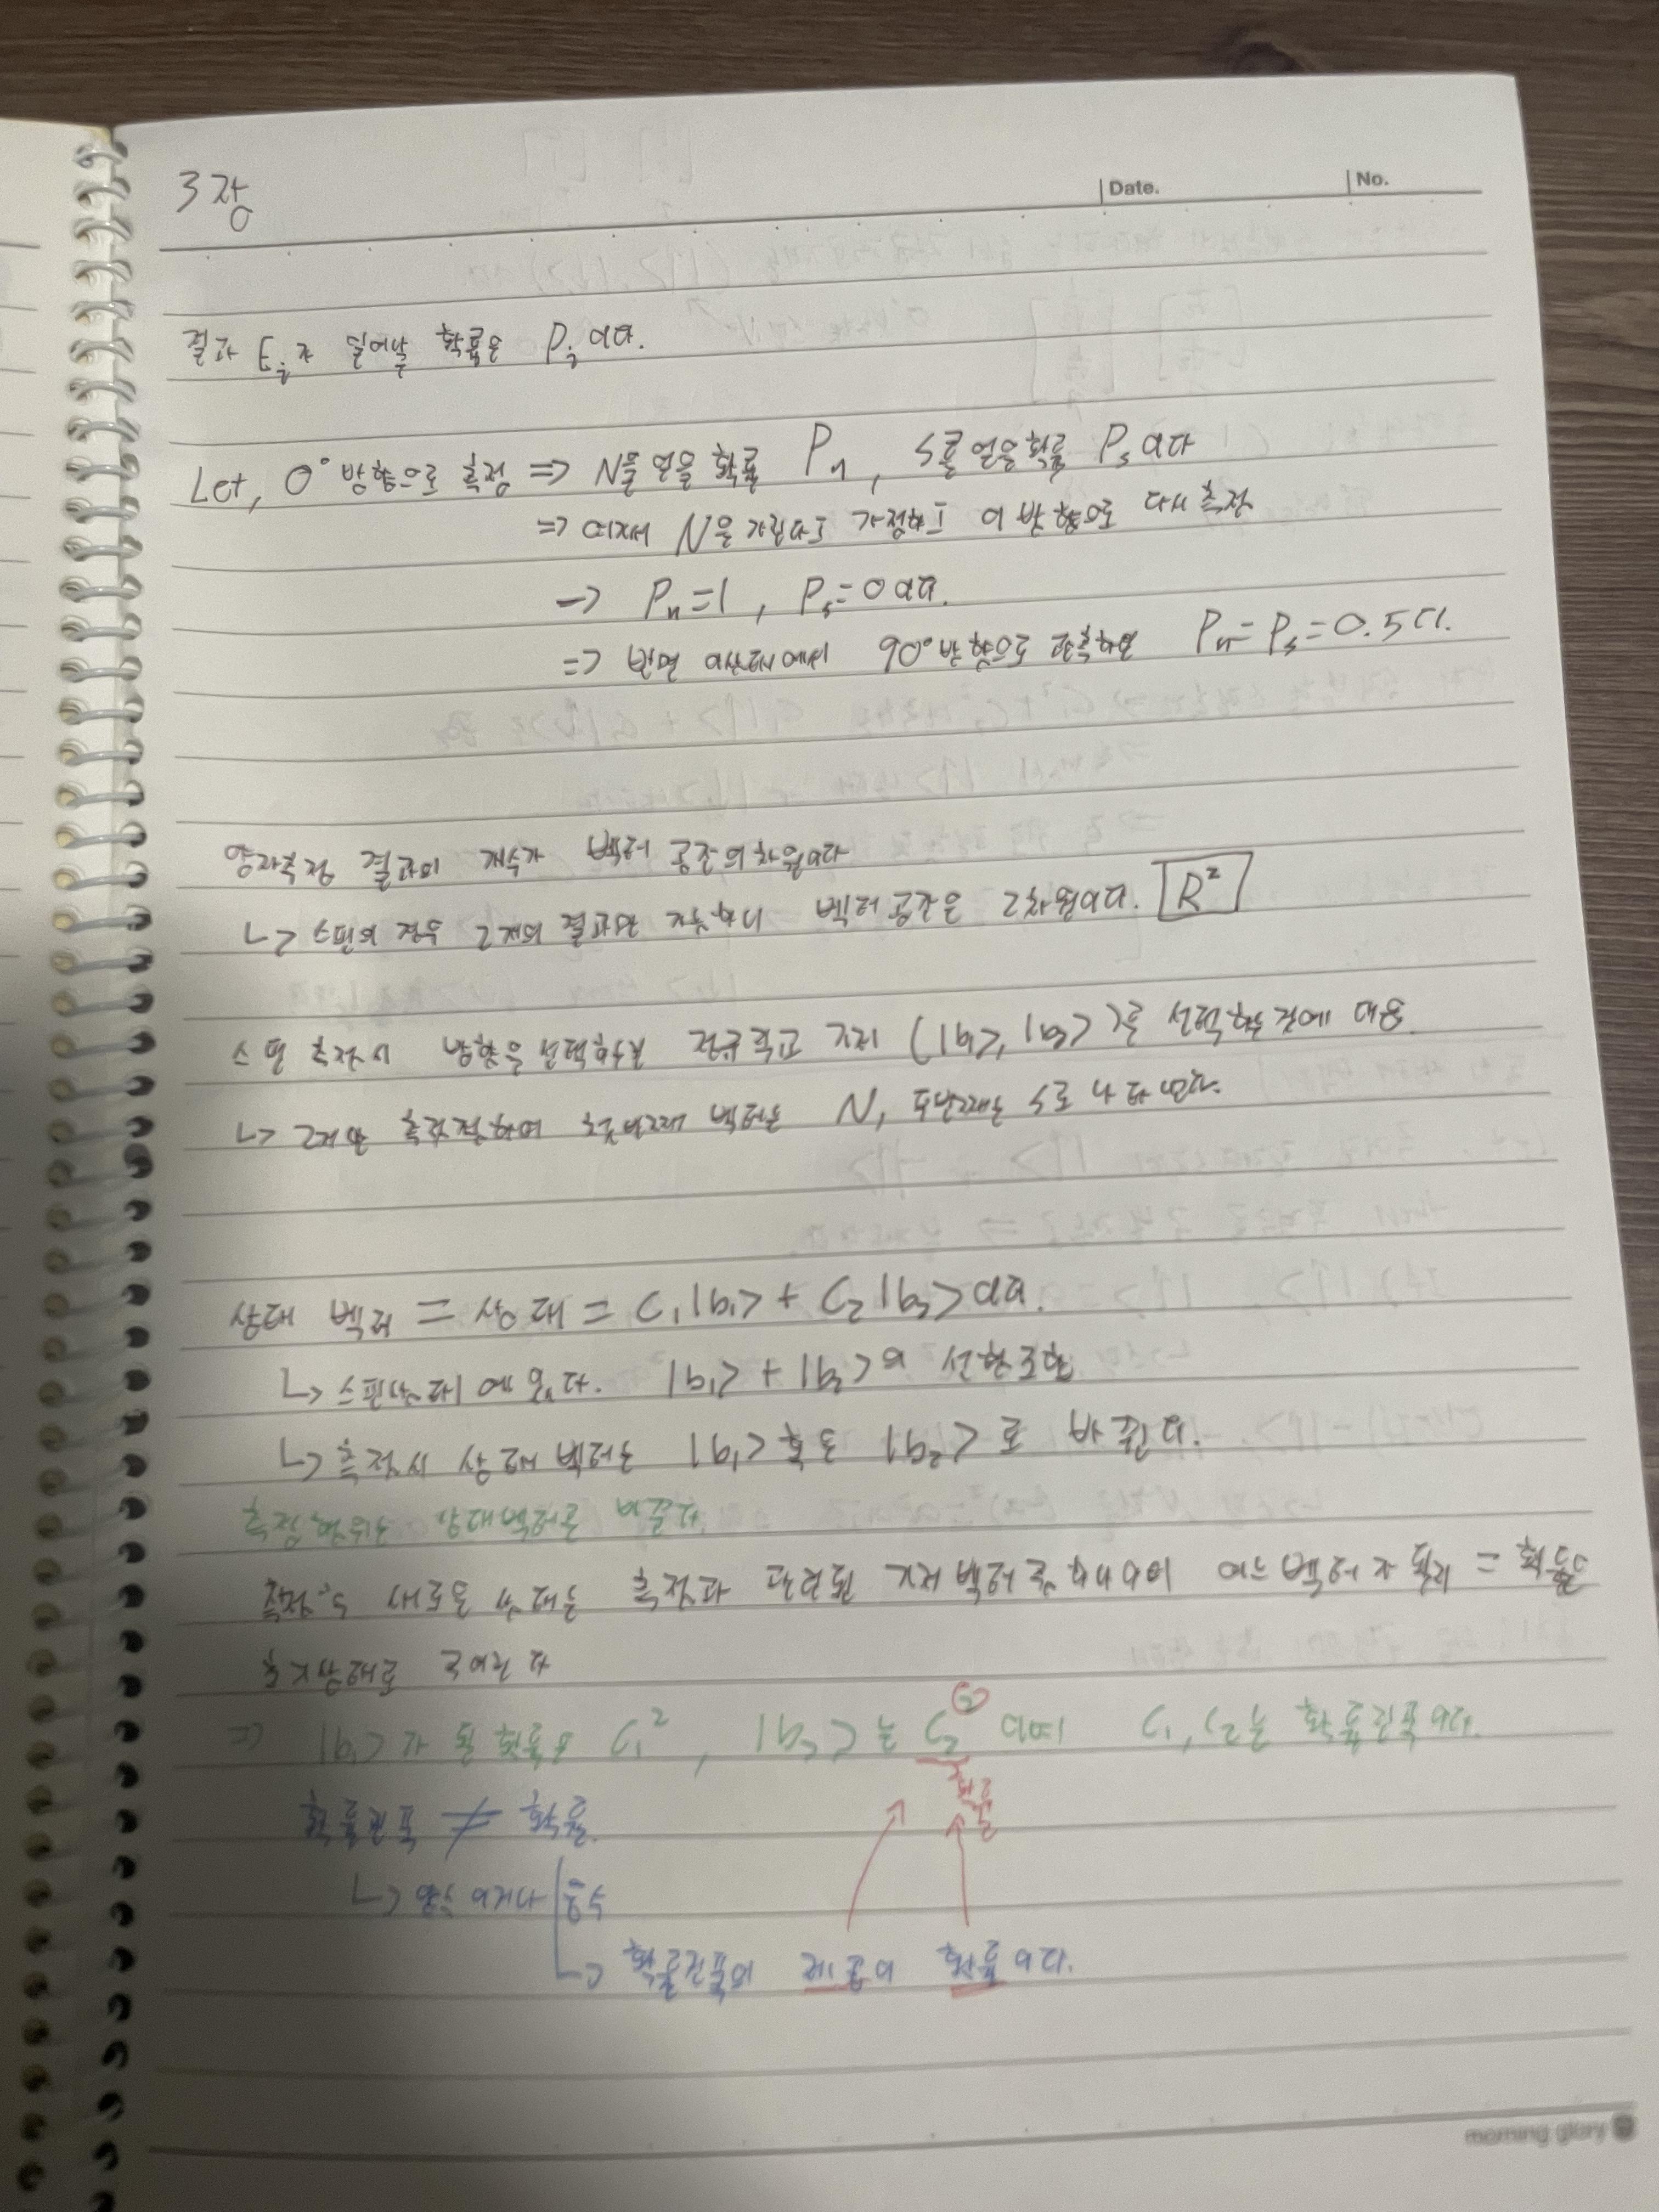 3장
Date. No.
결과 E_i가 일어날 확률은 P_i 이다.
Let, 0° 방향으로 측정 => N을 얻을 확률 P_n, S를 얻을확률 P_s이다
=> 이제 N을 가정하고 이 방향으로 다시 측정
-> P_n=1, P_s=0이다.
=> 반면 이상태에서 90°방향으로 관측하면 P_n=P_s=0.5다.
양자측정 결과의 개수가 벡터 공간의차원이다
↳ 스핀의 경우 2개의 결과만 가능하니 벡터공간은 2차원이다. R²
스핀 측정시 방향을 선택하는것 정규직교 기저 (|b1>, |b2>)를 선택하는 것에 대응.
↳ 벡터는 N, 두번째는 S로 나타낸다.
상태 벡터 = 상태 = C1|b1> + C2|b2>이다.
↳ 스핀상태에 있다. |b1> + |b2>의 선형조합
↳ 측정시 상태벡터는 |b1> 혹은 |b2>로 바뀐다.
상태벡터로 바뀐다
측정후 새로운 상태는 측정과 관련된 기저벡터중 하나이며 어느벡터가 될지 = 확률
로
=> |b1>가 될 확률은 C1², |b2>는 C2² 이며 C1, C2는 확률진폭이다.
확률
확률진폭 ≠ 확률.
↳ 양수 이거나 음수
↳ 확률진폭의 제곱이 확률이다.
morning glory